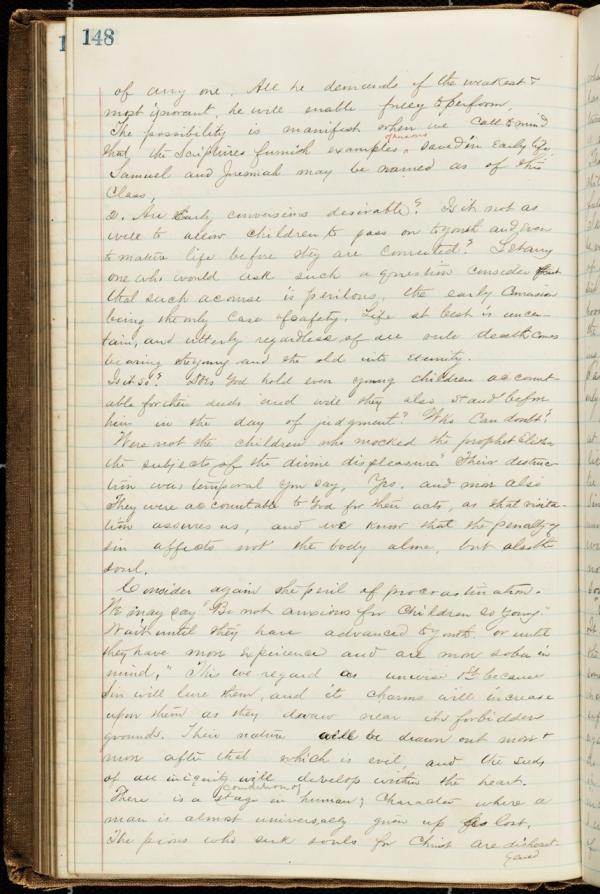 148
of any one. All he demands of the weakest &
most ignorant, he will enable freely to perform.
The possibility is manifest when we call to mind
that the Scriptures furnish examples of persons saved in early life
Samuel and Jeremiah may be named as of this
Class,
2. Are Early conversions desirable? Is it not as
well to allow children to pass on to youth and even
to mature life before they are converted? Let any
one who would ask such a question consider first
that such a course is perilous, the early Conversion
being the only case of safety. Life at best is uncer-
tain, and utterly regardless of all rule death comes
bearing the young and the old into eternity.
Is it so? Does God hold even young children account-
able for their deeds and will they also stand before
him in the day of judgment? Who can doubt?
Were not the children who mocked the prophet Elisha
the subjects of the divine displeasure? Their destruc-
tion was temporal you say, Yes, and more also
They were accountable to God for their acts, as that visita-
tion assures us, and we know that the penalty of
sin affects not the body alone, but also the
soul.
Consider again the peril of procrastination.
We may say "Be not anxious for Children so young."
Wait until they have advanced to youth, or until
they have more experience and are more sober in
mind," This we regard as unwise 1st because
Sin will lure them, and its charms will increase
upon them as they draw near its forbidden
grounds. Their nature will be drawn out more &
more after that which is evil, and the seeds
of all iniquity will develop within the heart.
There is a stage in condition of human character where a
man is almost universally given up as lost.
The pious who seek souls for Christ are disheart-
ened